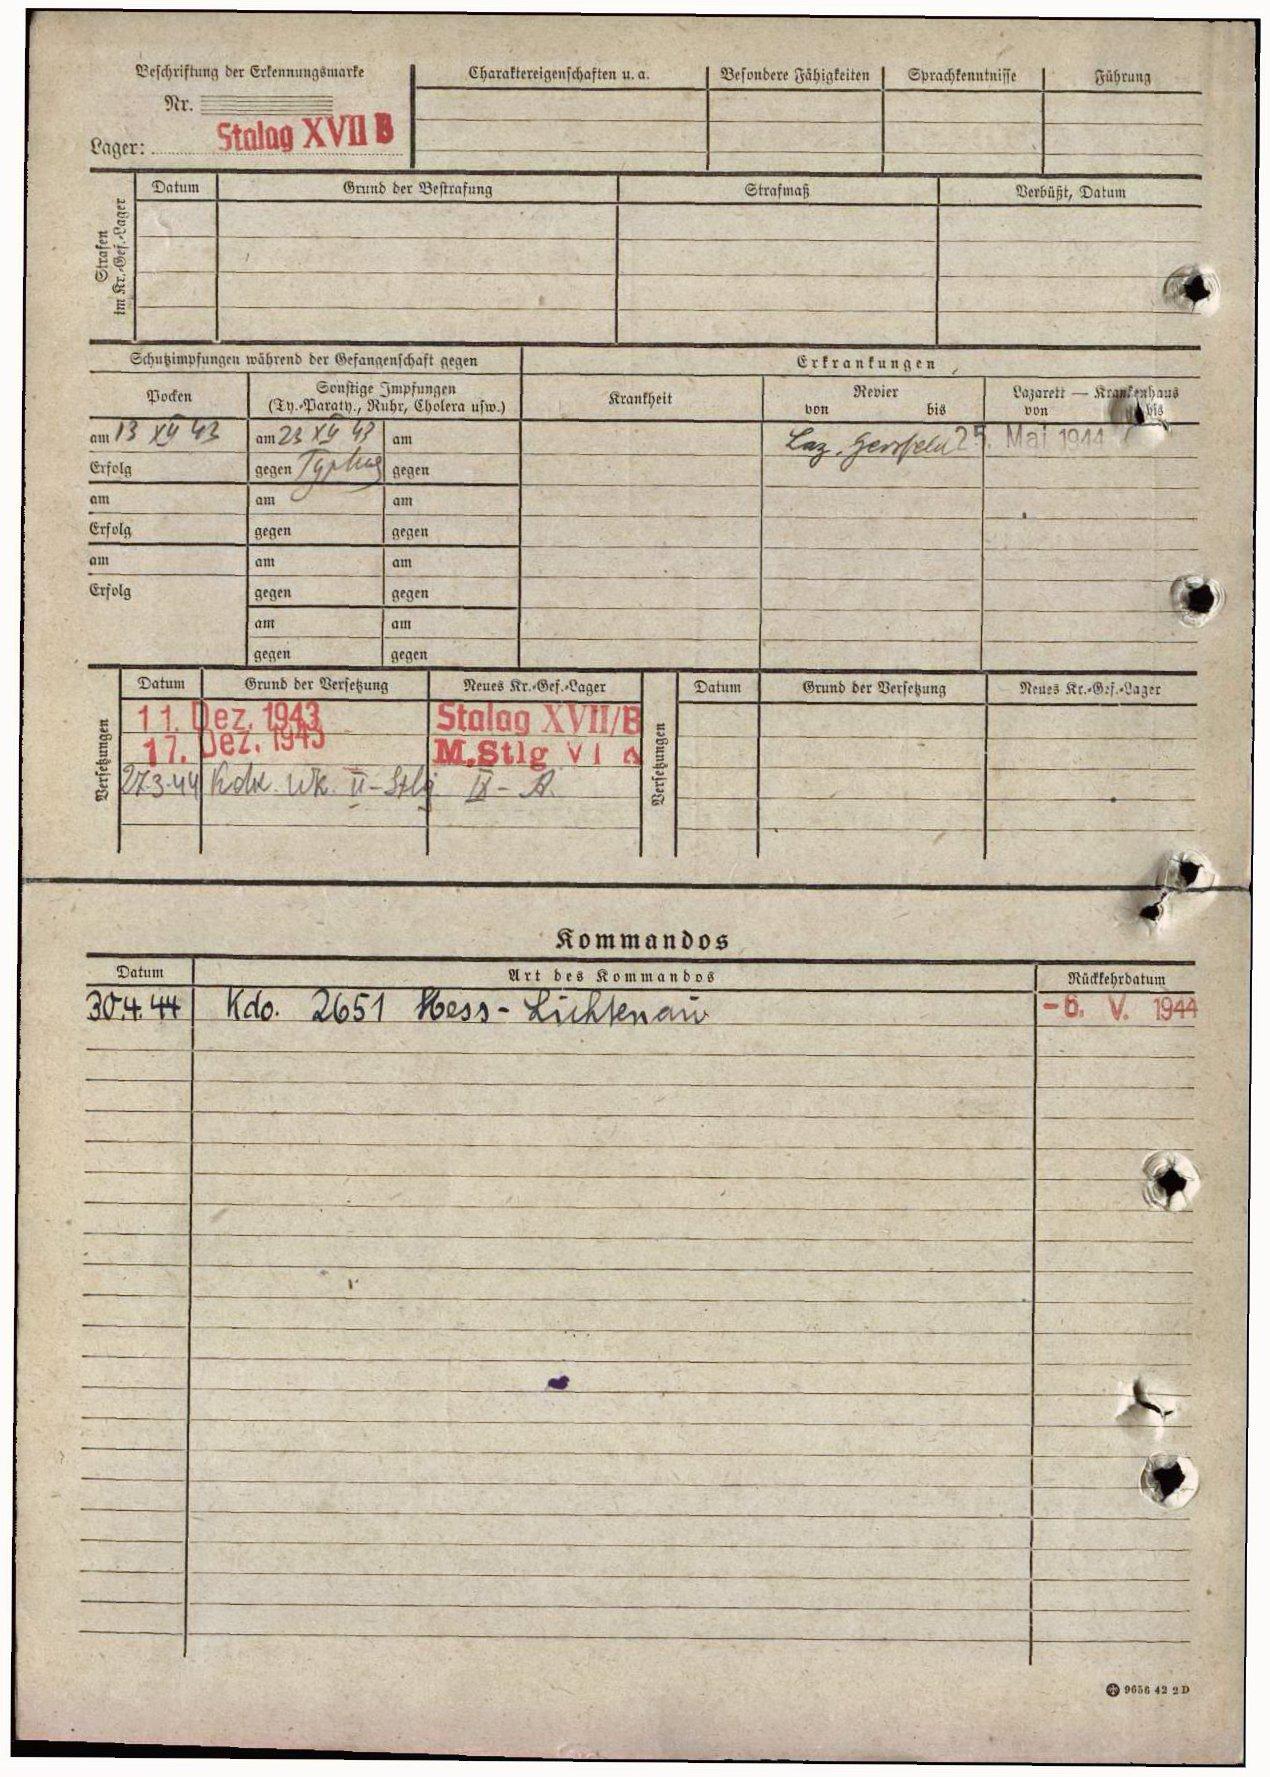 Beschriftung der Erkennungsmarke
Nr.
Lager: Stalag XVII B
Charaktereigenschaften u. a.
Besondere Fähigkeiten
Sprachkenntnisse
Führung
Strafen im Kr.-Gef.-Lager
Datum
Grund der Bestrafung
Strafmaß
Verbüßt, Datum
Schutzimpfungen während der Gefangenschaft gegen
Erkrankungen
Pocken
Sonstige Impfungen
(Ty.-Paraty., Ruhr, Cholera usw.)
Krankheit
Revier
von bis
Lazarett — Krankenhaus
von bis
am 13 XII 43 am 23 XII 43 am
Laz. 25. Mai 1944
Erfolg gegen Typhus gegen
am am am
Erfolg gegen gegen
am am am
Erfolg gegen gegen
am am
gegen gegen
Versetzungen
Datum Grund der Versetzung Neues Kr.-Gef.-Lager
11. Dez. 1943 Stalag XVII/B
17. Dez. 1943 M.Stlg VI A
27.3.44 Kdr. Wk. II - Stlg. IX - A.
Versetzungen
Datum Grund der Versetzung Neues Kr.-Gef.-Lager
Kommandos
Datum Art des Kommandos Rückkehrdatum
30.4.44 Kdo. 2651 Hess-Lichtenau -6. V. 1944
9656 42 2 D